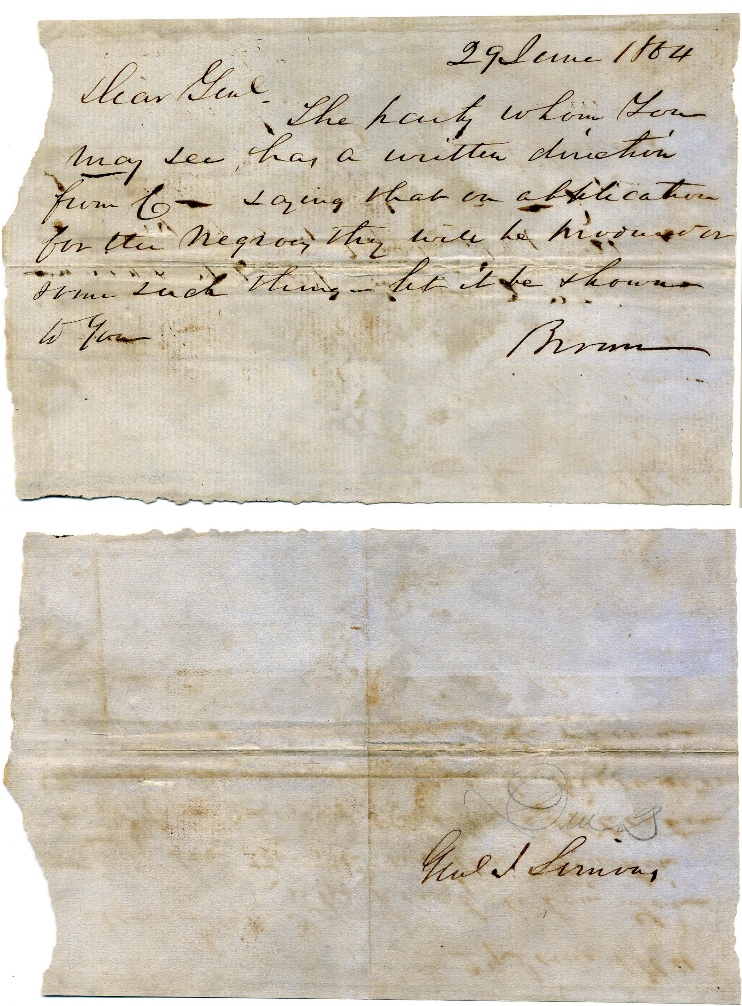 29 June 1864
Dear Genl.
The party whom You
may see, has a written direction
from C— saying that on application
for the Negroes, they will be produced or
some such thing — let it be shown
to You
Brown
Genl J Simons